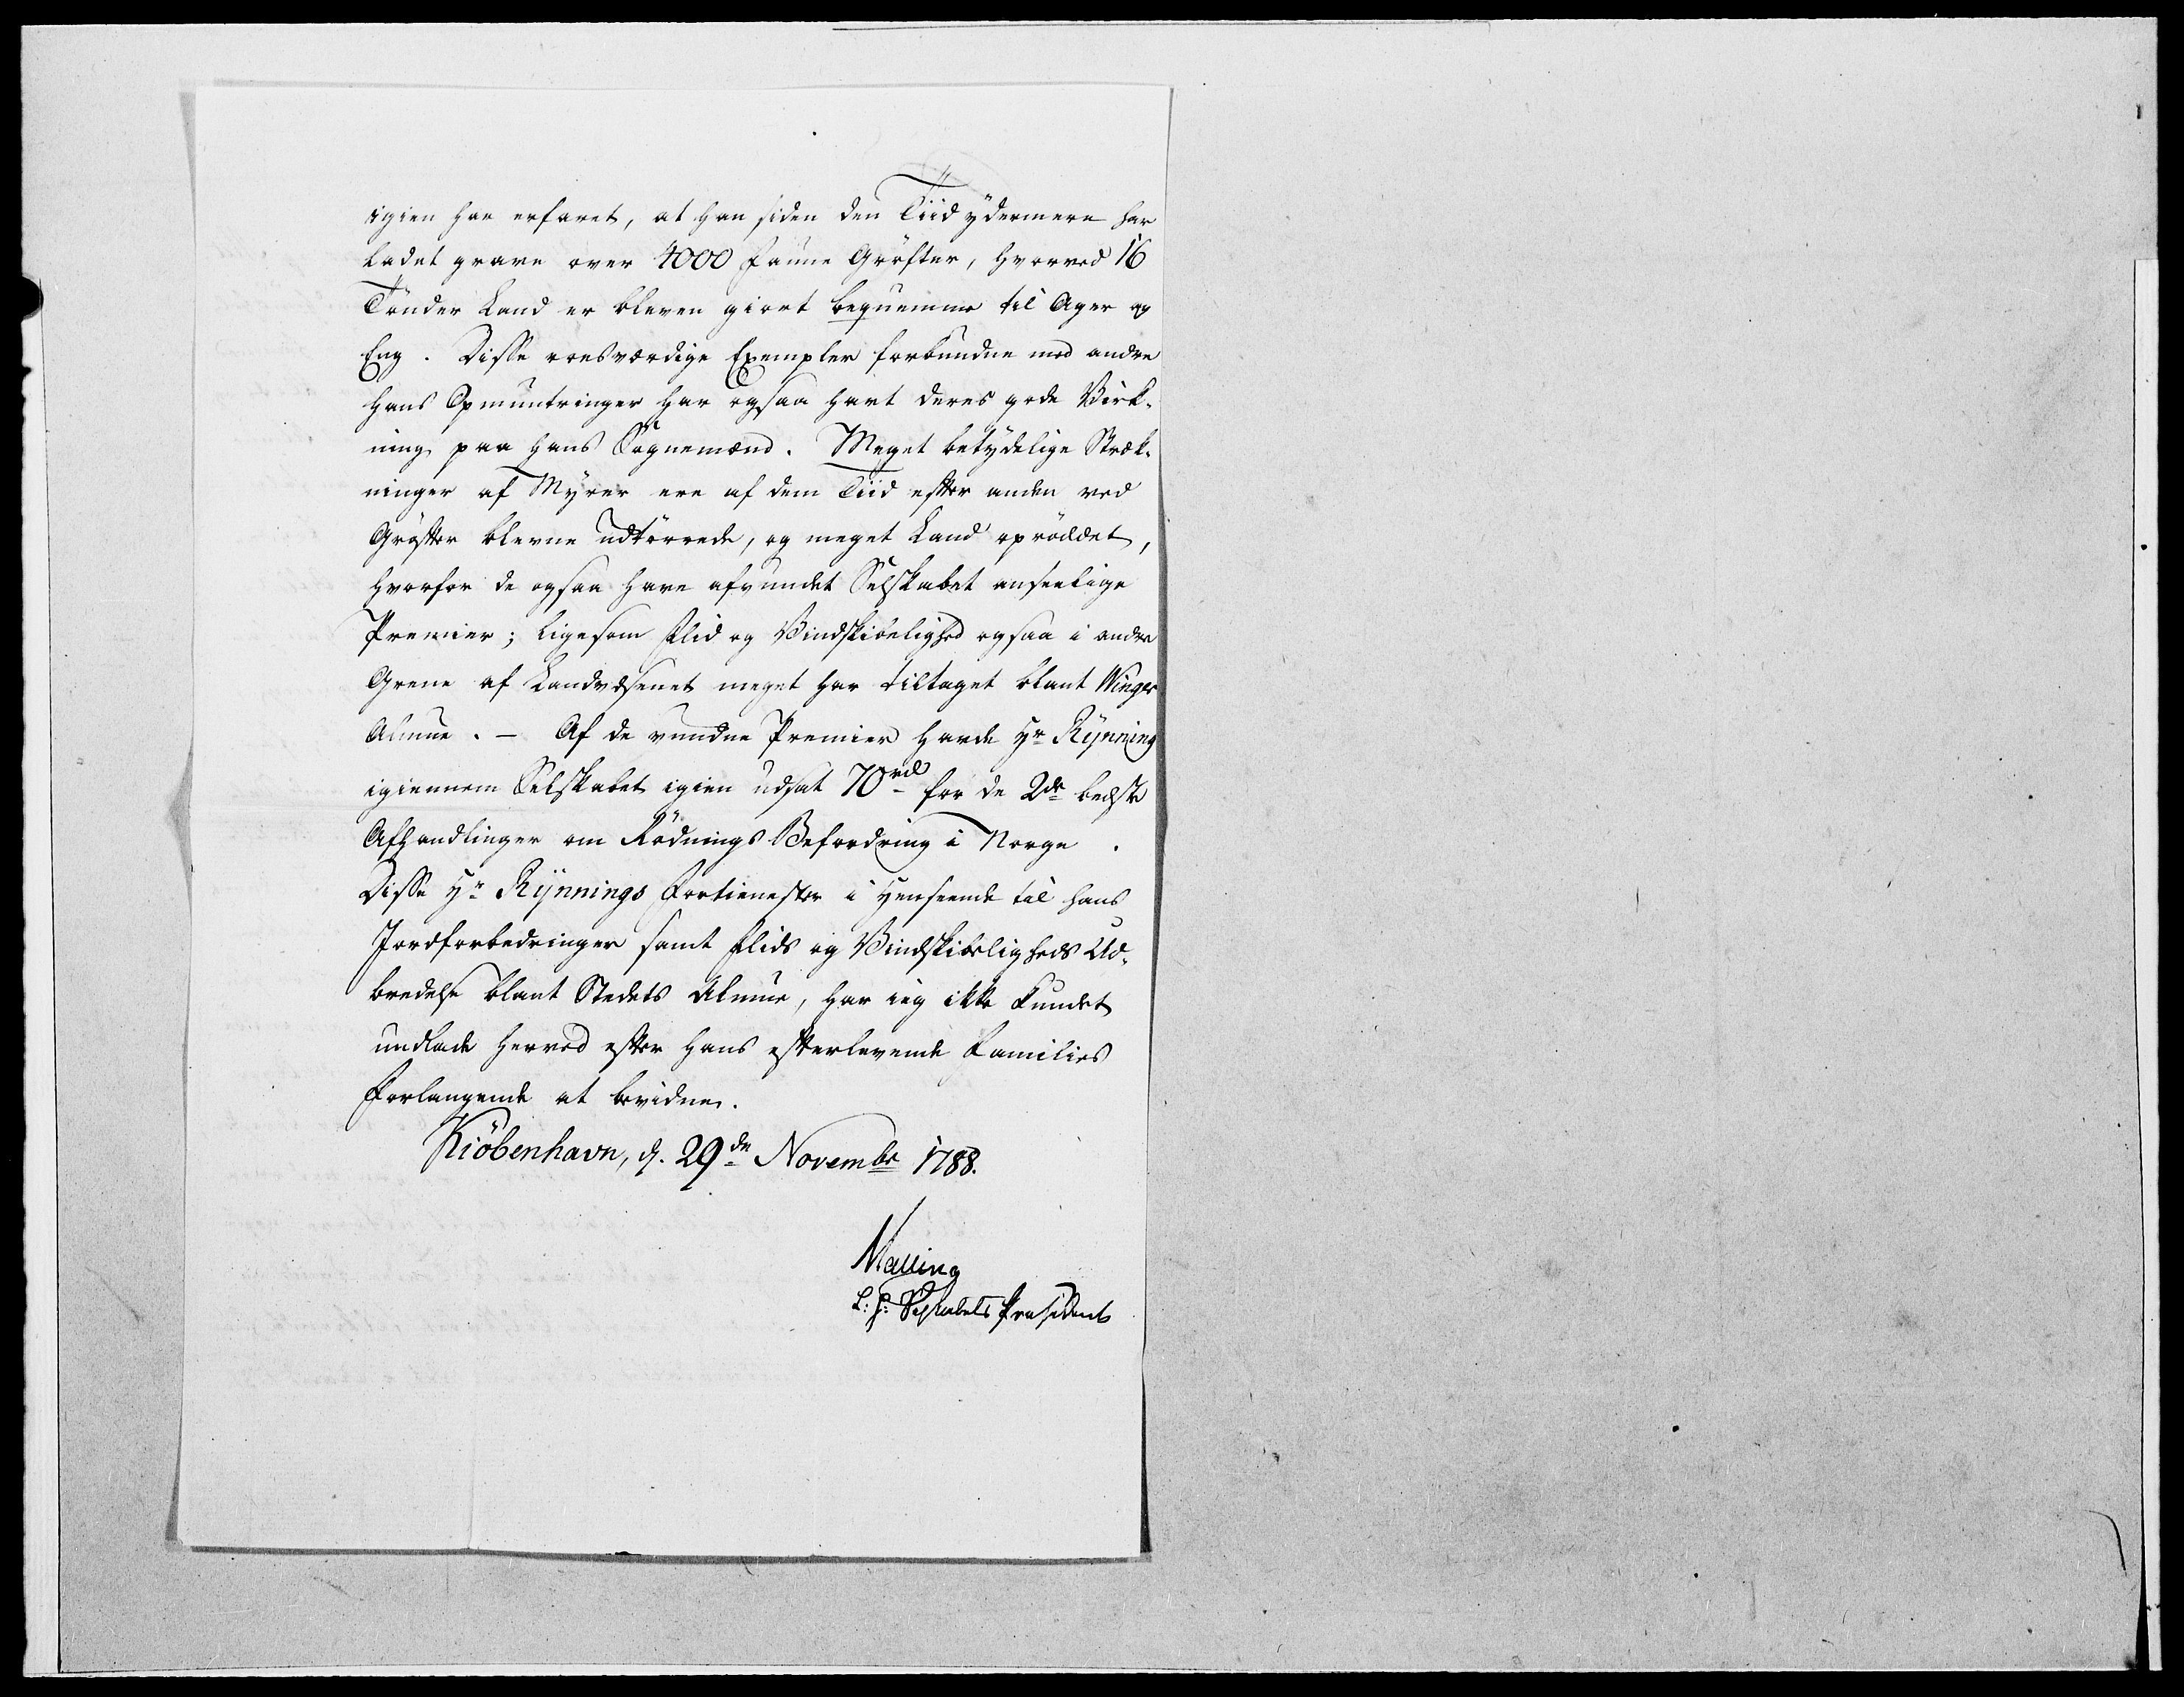 igien har erfaret, at han siden den Tiid ydermere har
ladet grave over 4000 Faune Gröfter, hvorved 16
Tönder Land er bleven giort bequemme til Ager og
Eng. Disse roesværdige Exempler forbundne med andre
Hans Opmuntringer har ogsaa havt deres gode Virk-
ning paa Hans Sognemænd. Meget betydelige Stræk-
ninger af Myrer ere af dem Tiid efter anden ved
Gröfter blevne udtörrede, og meget Land opröddet,
hvorfor de ogsaa have afvundet Selskabet anseelige
Premier; ligesom Flid og Vindskibelighed ogsaa i andre
Grene af Landvæsenet meget har tiltaget blant Winger
Almue. - Af de vundne Premier havde Hr Rÿnning
igiennem Selskabet igien udsat 70 rdl for de 2de bedste
Afhandlinger om Rödnings Befordring i Norge.
Disse Hr Rÿnnings Fortienester i Henseende til hans
Jordforbedringer samt Flids og Vindskibeligheds Ud-
bredelse blant Stedets Almue, har ieg ikke kundet
undlade herved efter Hans efterlevende Families
Forlangende at bevidne.
Kiöbenhavn, d. 29de Novembr 1788.
Malling
L: H: Selskabets Præsident